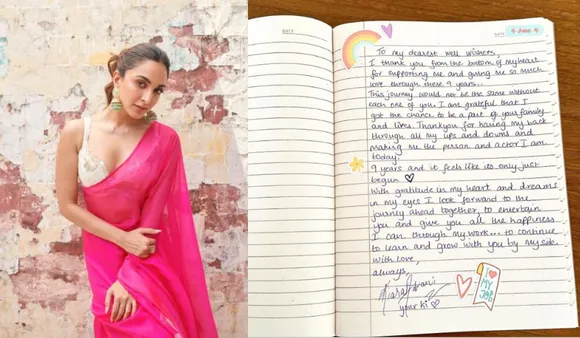 DATE
DATE
June
To my dearest well wishers,
I thank you from the bottom of my heart
for supporting me and giving me so much
love through these 9 years..
This journey would not be the same without
each one of you. I am grateful that I
got the chance to be a part of your family
and lives. Thankyou for having my back
through all my ups and downs and
making me the person and actor I am
today.
9 years and it feels like its only just
begun
With gratitude in my heart and dreams
in my eyes I look forward to the
journey ahead together, to entertain
you and give you all the happiness
I can through my work... to continue
to learn and grow with you by my side.
With love,
always,
Kiara Advani
your ki
I
MY
JOB